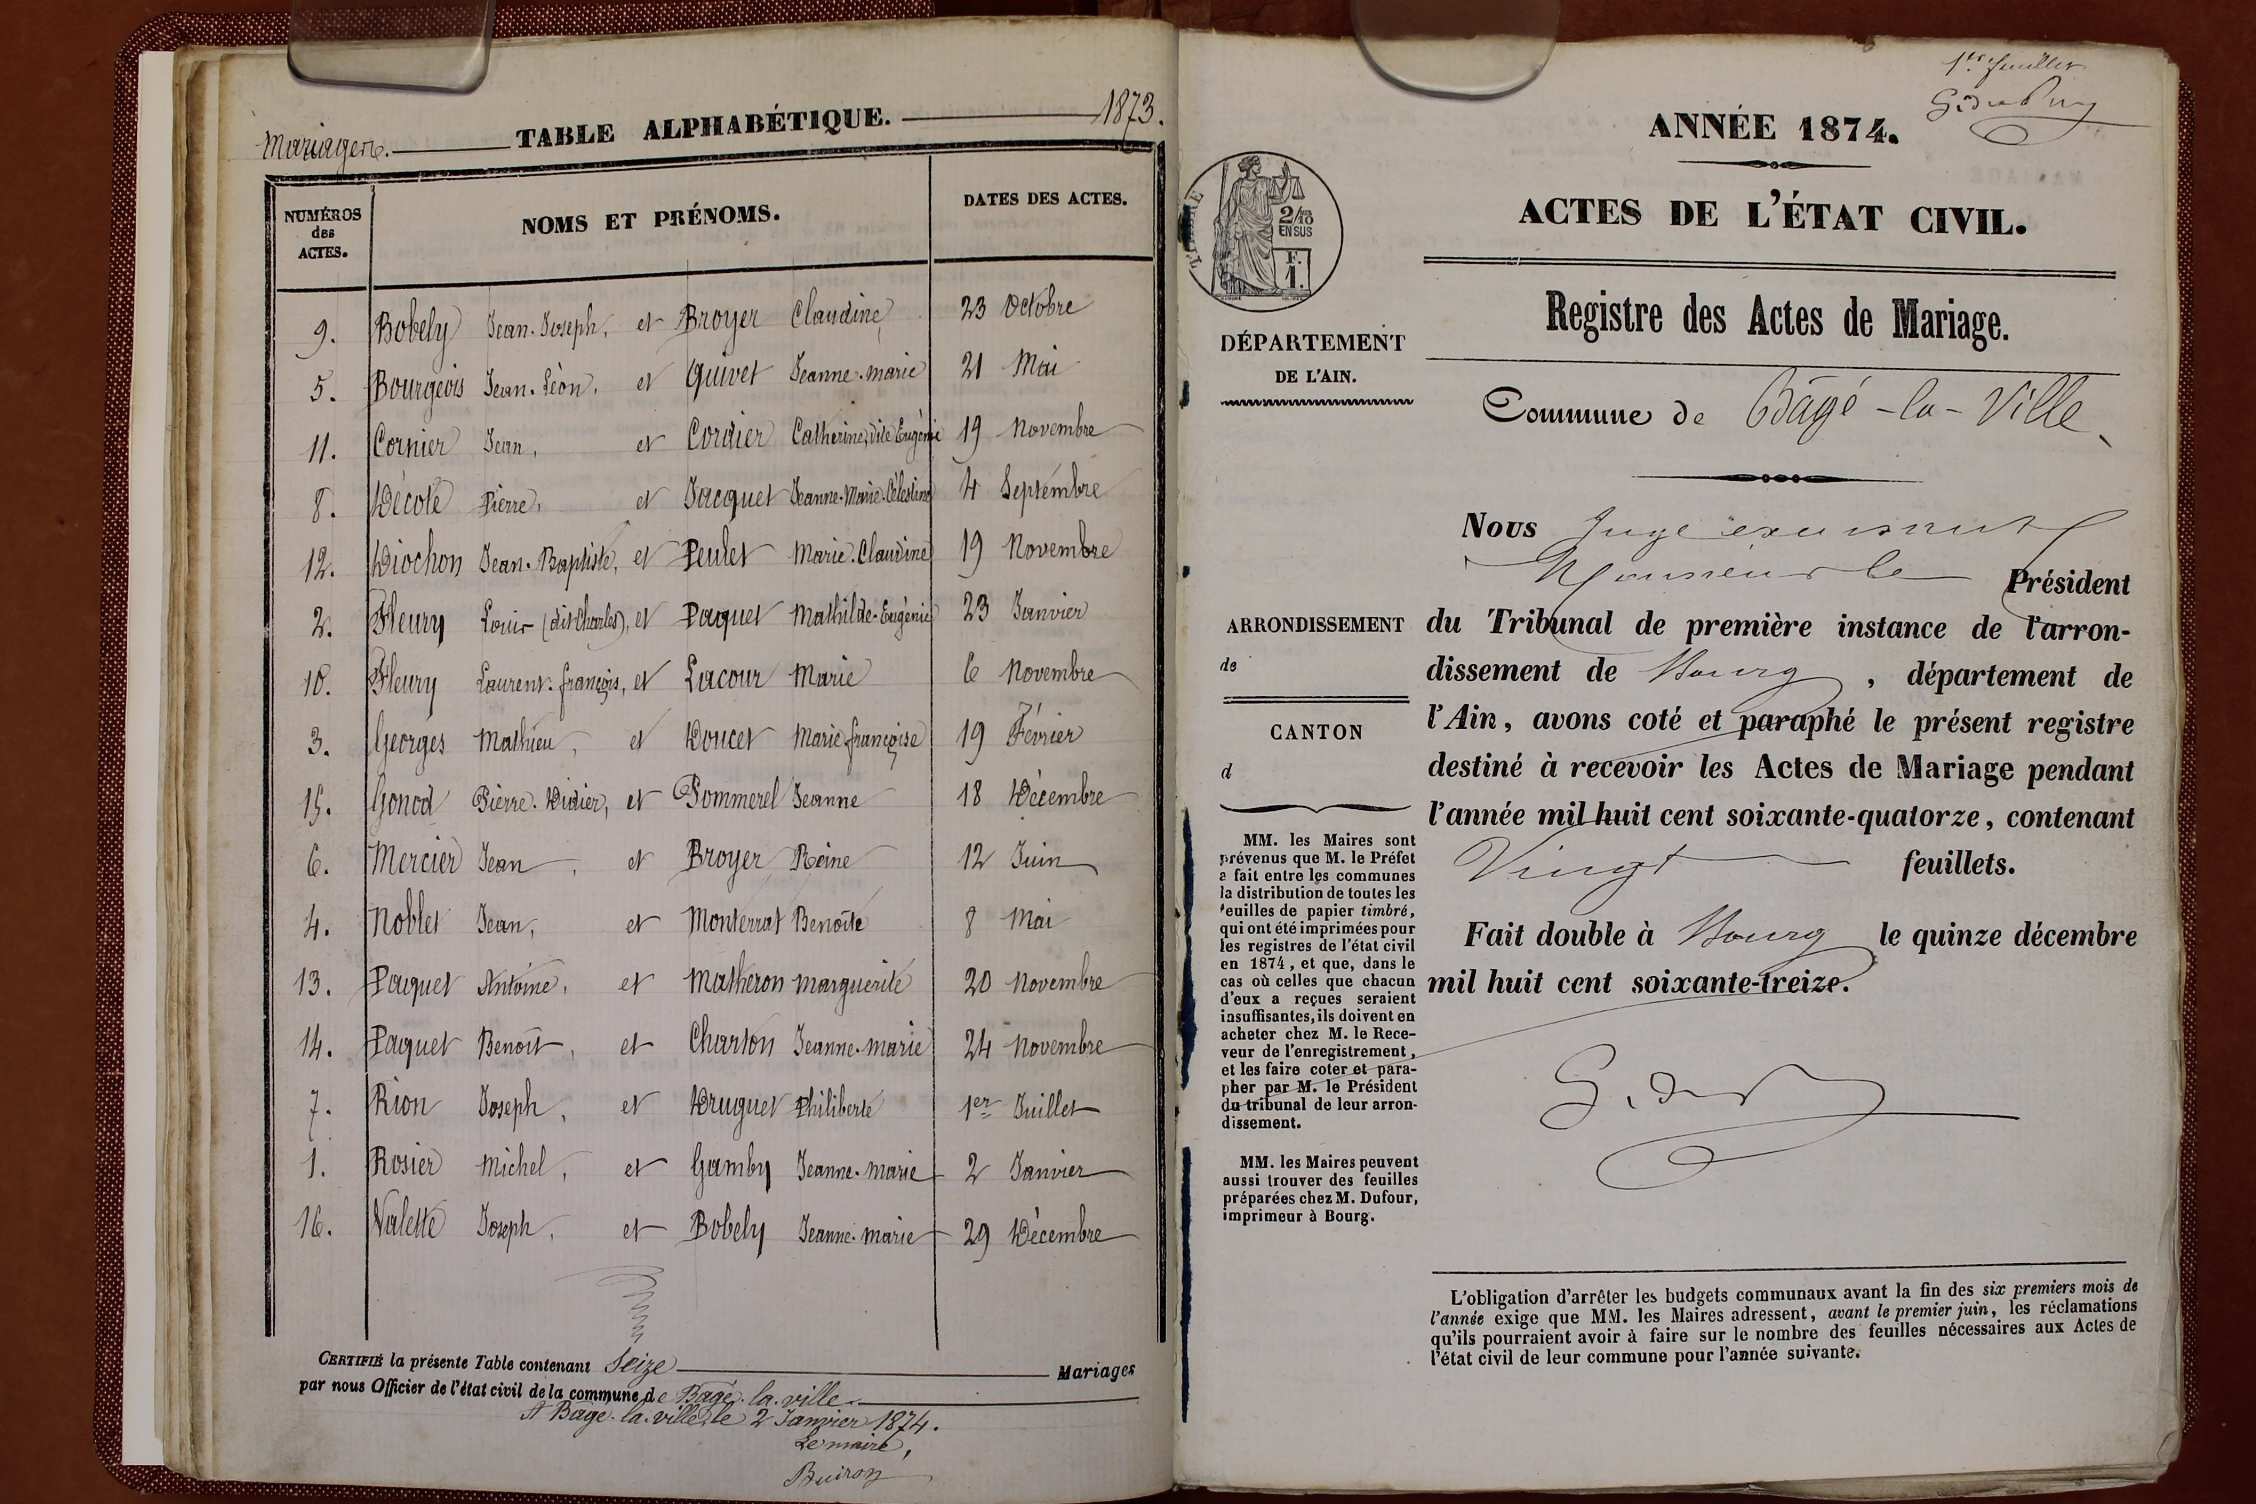 Mariages. TABLE ALPHABÉTIQUE. 1873.
NUMÉROS des ACTES. NOMS ET PRÉNOMS. DATES DES ACTES.
9. Bobely Jean-Joseph, et Broyer Claudine 23 Octobre
5. Bourgeois Jean-Léon, et Guivet Jeanne-Marie 21 Mai
11. Cornier Jean, et Cordier Catherine, dite Eugénie 19 Novembre
8. Décote Pierre, et Jacquet Jeanne-Marie-Célestine 4 Septembre
12. Diochon Jean-Baptiste, et Peulet Marie-Claudine 19 Novembre
2. Fleury Louis (dit Charles), et Paquet Mathilde-Eugénie 23 Janvier
10. Fleury Laurent-françois, et Lacour Marie 6 Novembre
3. Georges Mathieu, et Doucet Marie françoise 19 Février
15. Gonod Pierre-Didier, et Pommerel Jeanne 18 Décembre
6. Mercier Jean, et Broyer Reine 12 Juin
4. Noblet Jean, et Monterrat Benoîte 8 Mai
13. Paquet Antoine, et Matheron Marguerite 20 Novembre
14. Paquet Benoît, et Charton Jeanne-Marie 24 Novembre
7. Rion Joseph, et Druguet Philiberte 1er Juillet
1. Rosier Michel, et Gamby Jeanne-Marie 2 Janvier
16. Valette Joseph, et Bobely Jeanne-Marie 29 Décembre
CERTIFIÉ la présente Table contenant Seize Mariages
par nous Officier de l'état civil de la commune de Bâgé-la-ville
A Bâgé-la-ville, le 2 Janvier 1874.
Le maire,
Buiron
1er feuillet
ANNÉE 1874.
ACTES DE L'ÉTAT CIVIL.
TIMBRE
2/10 EN SUS
F. 1.
Registre des Actes de Mariage.
DÉPARTEMENT
DE L'AIN.
Commune de Bâgé-la-Ville
Nous Juge
Monsieur le Président
du Tribunal de première instance de l'arron-
dissement de Bourg, département de
l'Ain, avons coté et paraphé le présent registre
destiné à recevoir les Actes de Mariage pendant
l'année mil huit cent soixante-quatorze, contenant
Vingt feuillets.
Fait double à Bourg le quinze décembre
mil huit cent soixante-treize.
ARRONDISSEMENT
de
CANTON
d
MM. les Maires sont
prévenus que M. le Préfet
a fait entre les communes
la distribution de toutes les
feuilles de papier timbré,
qui ont été imprimées pour
les registres de l'état civil
en 1874, et que, dans le
cas où celles que chacun
d'eux a reçues seraient
insuffisantes, ils doivent en
acheter chez M. le Rece-
veur de l'enregistrement,
et les faire coter et para-
pher par M. le Président
du tribunal de leur arron-
dissement.
MM. les Maires peuvent
aussi trouver des feuilles
préparées chez M. Dufour,
imprimeur à Bourg.
L'obligation d'arrêter les budgets communaux avant la fin des six premiers mois de
l'année exige que MM. les Maires adressent, avant le premier juin, les réclamations
qu'ils pourraient avoir à faire sur le nombre des feuilles nécessaires aux Actes de
l'état civil de leur commune pour l'année suivante.